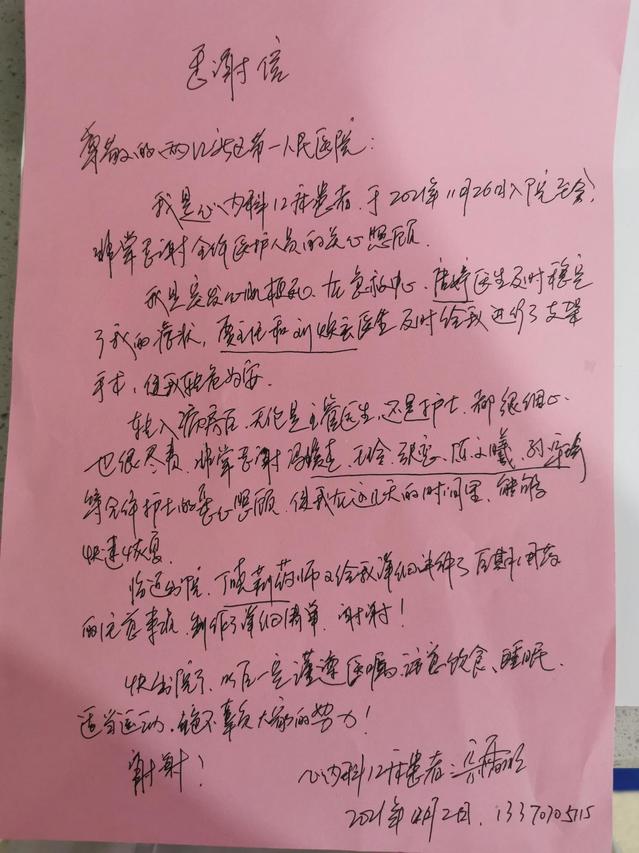 感谢信
尊敬的两江新区第一人民医院:
我是心内科12床患者,于2021年11月26日入院至今,
非常感谢全体医护人员的关心照顾。
我是突发心肌梗死、在急救中心、唐婷医生及时稳定
了我的症状,贾主任和刘医生及时给我进行了支架
手术,使我转危为安。
转入病房后,无论是主管医生,还是护士,都很细心
也很尽责,非常感谢冯、王、张、陈文曦、孙
等全体护士的悉心照顾,使我在这几天的时间里,能够
快速恢复。
临近出院,丁晓莉药师又给我详细讲解了后期用药
的注意事项,制作了详细清单,谢谢!
快出院了,以后一定谨遵医嘱,注意饮食、睡眠、
适当运动,绝不辜负大家的努力!
谢谢! 心内科12床患者:
2021年12月2日.13370705115